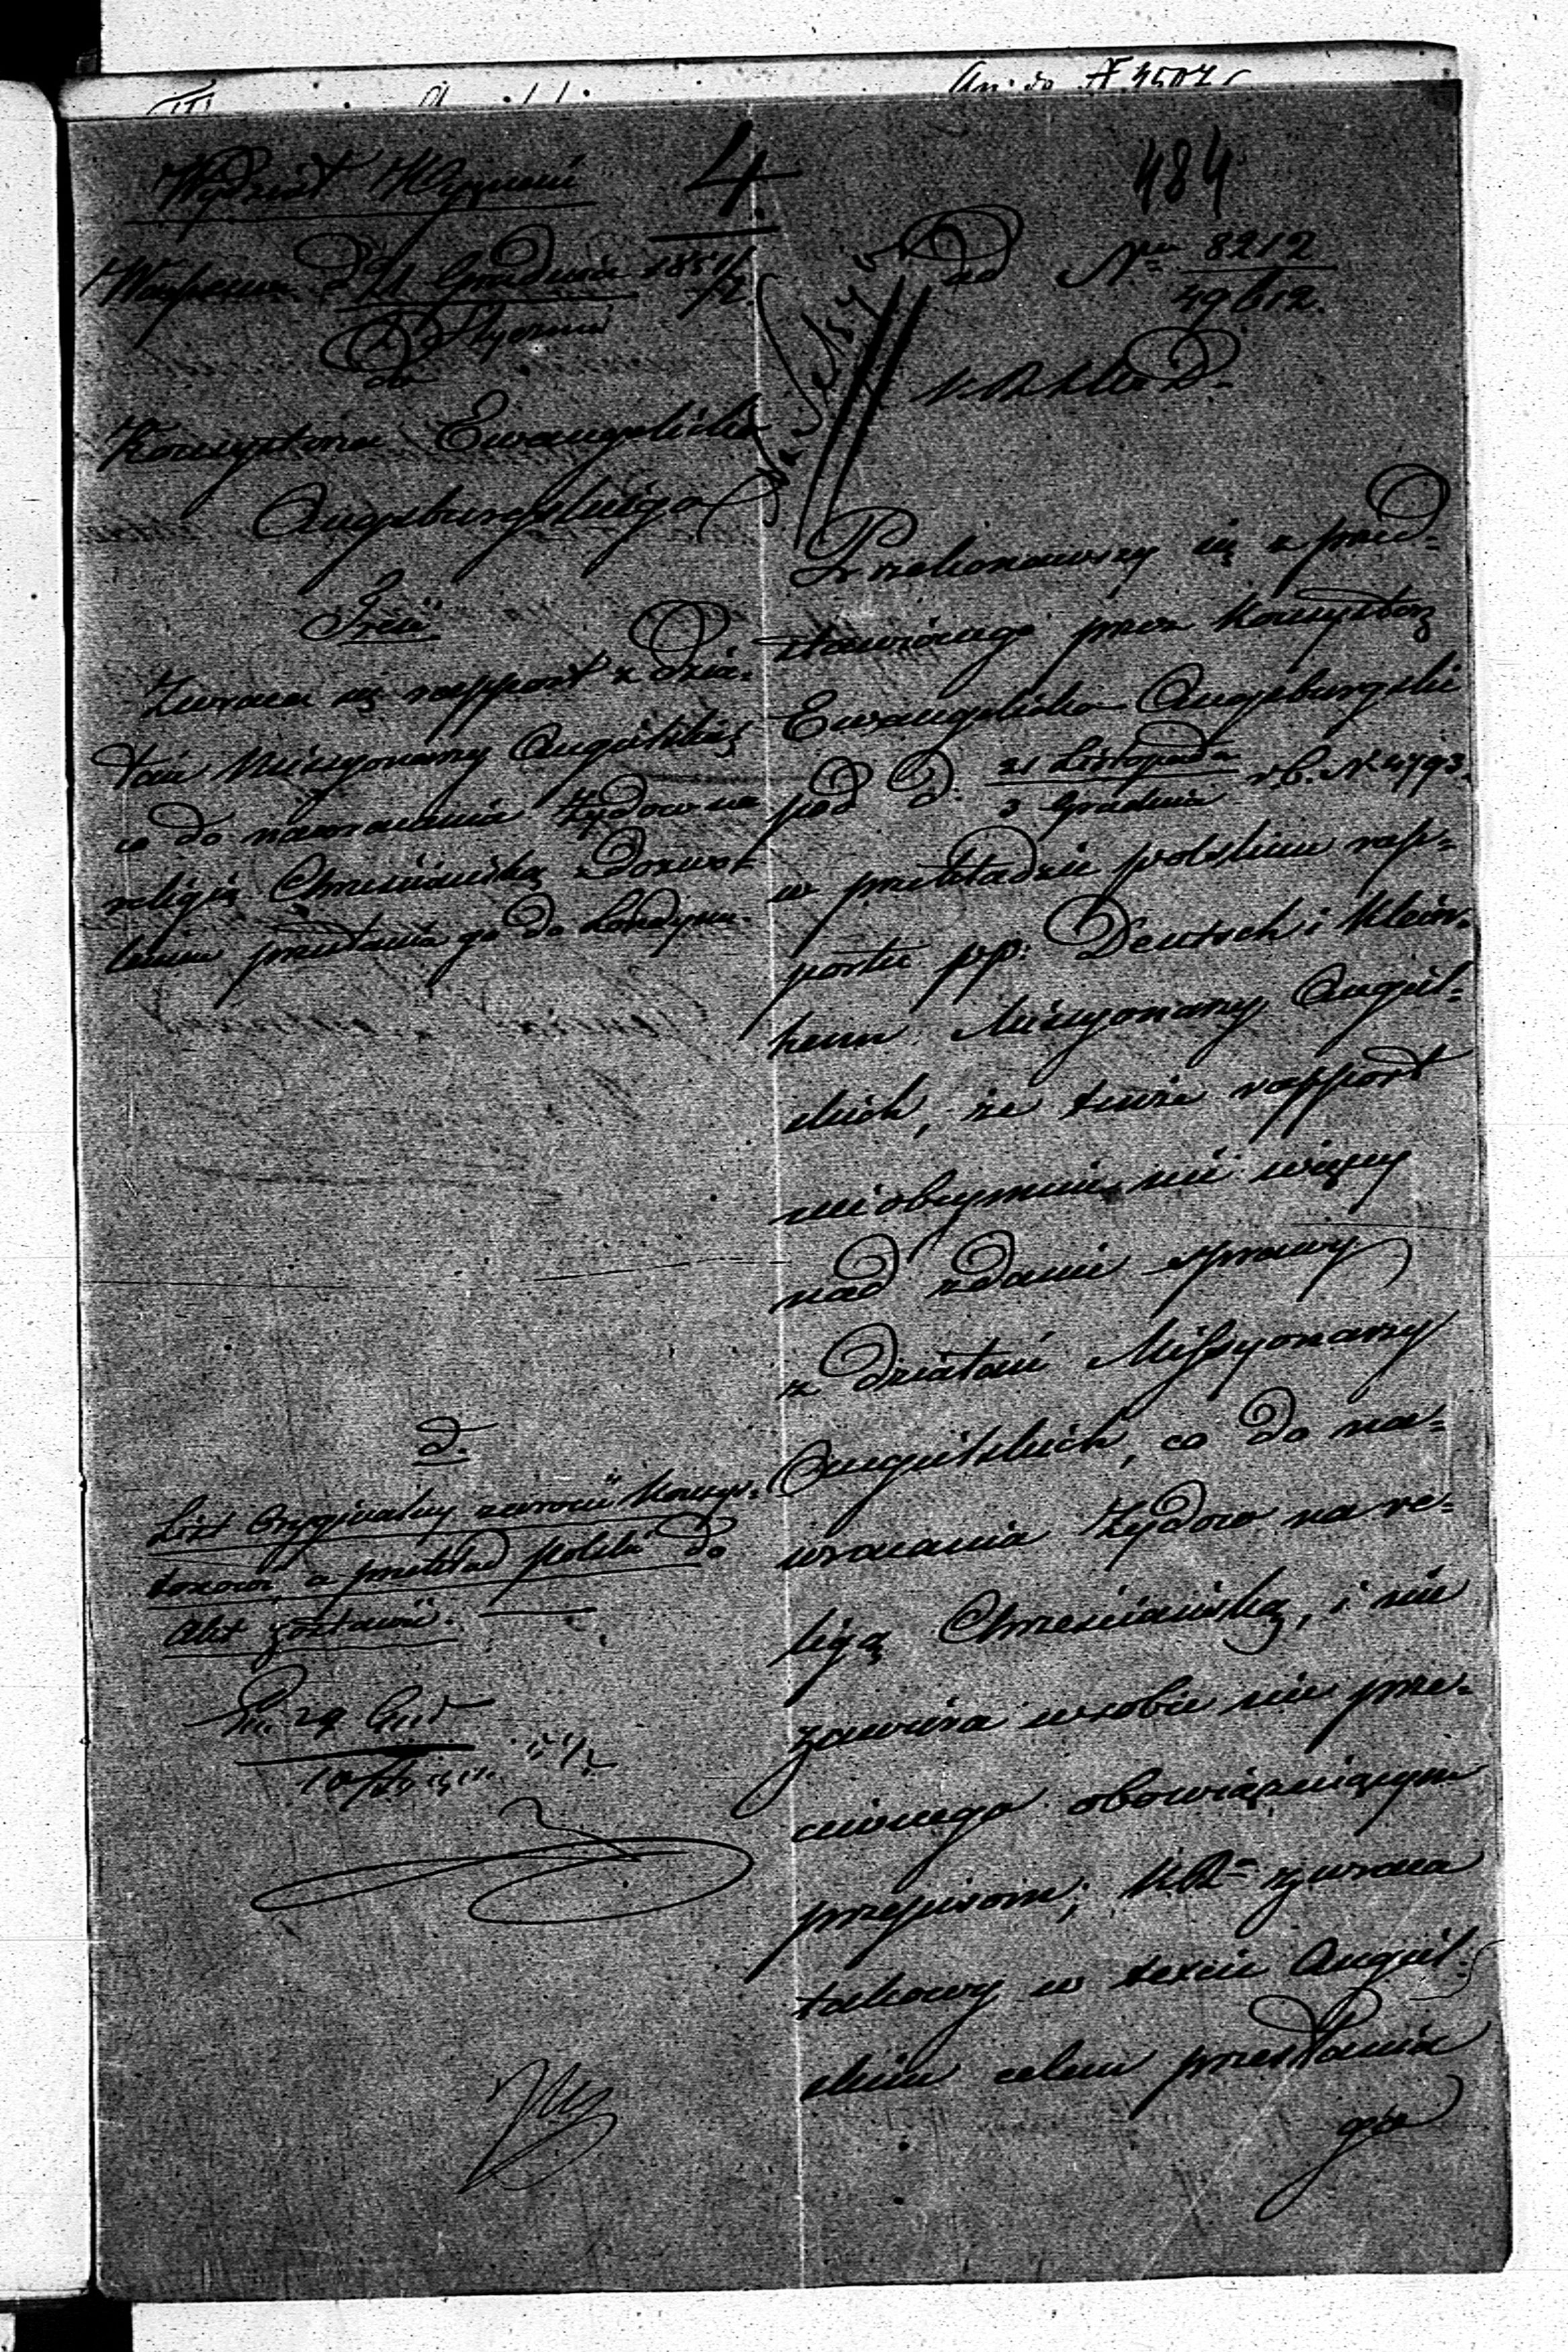 Wydział Wyznań
4.
484
Warszawa d. 21 Grudnia 1851/2.
2 Stycznia
do
Konsystorza Ewangelicko
Augsburgskiego
Treść
Zwraca się rapport z dzia-
łań Missyonarzy Angielskich
co do nawracania Żydów na
religią Chrześciańską z dozwo-
leniem przesłania go do Londynu.
d.
List Oryginalny zwrócić Konsys-
torzowi, a przekład polski do
Akt zostawić.
29 Gru
10 Stycz. 51/2
Nro 8212
49612.
Przekonawszy się z przed-
stawionego przez Konsystorz
Ewangelicko Augsburgski
pod d. 21 Listopada
3 Grudnia r.b. Nr 4793.
w przekładzie polskim rap-
portu pp: Deutsch i Klein-
henn Missyonarzy Angiel-
skich, że tenże rapport
nieobejmuje nic więcej
nad zdanie sprawy
z działań Missyonarzy
Angielskich, co do na-
wracania Żydów na re-
ligią Chrześciańską, i nie
zawiera w sobie nic prze-
ciwnego obowiązującym
przepisom; KR= zwraca
takowy w texcie Angiel-
skim celem przesłania
go